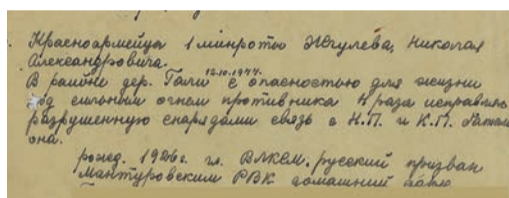 Красноармейца 1 минроты Жгулева, Николая
Александровича.
В районе дер. Гали 12.10.1944 с опасностью для жизни
под сильным огнем противника 4 раза исправлял
разрушенную снарядами связь с Н.П. и К.П. батали
она.
рожд. 1926 г. чл. ВЛКСМ. русский призван
Мантуровским РВК домашний